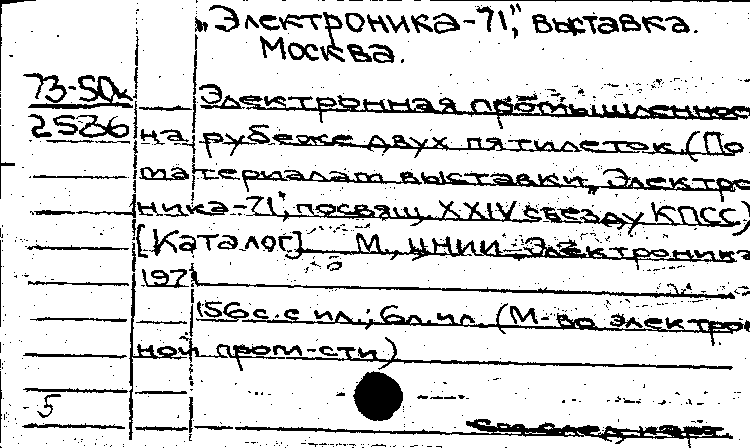 „Электроника-71", выставка.
Москва.
73-50к
2586
Электронная промышленнос
на рубеже двух пятилеток. (По
материалам выставки „Электро
ника-71", посвящ. XXIV съезду КПСС)
[Каталог]. М., ЦНИИ „Электроника
1971
156 с. с ил.; 6 л. ил. (М-во электрон
ной пром-сти)
5
См. след. карт.